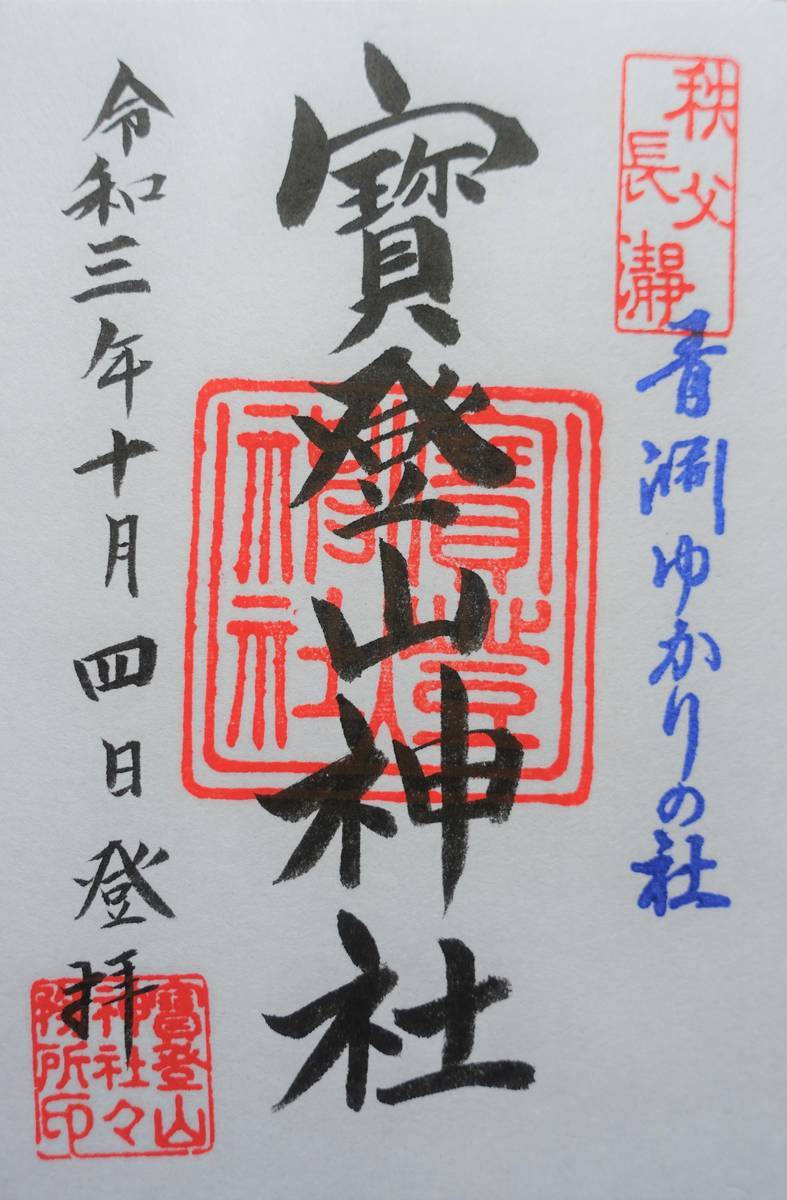 秩父
長瀞
青淵ゆかりの社
寶登山神社
寶登山
神社
令和三年十月四日登拝
寶登山
神社々
務所印